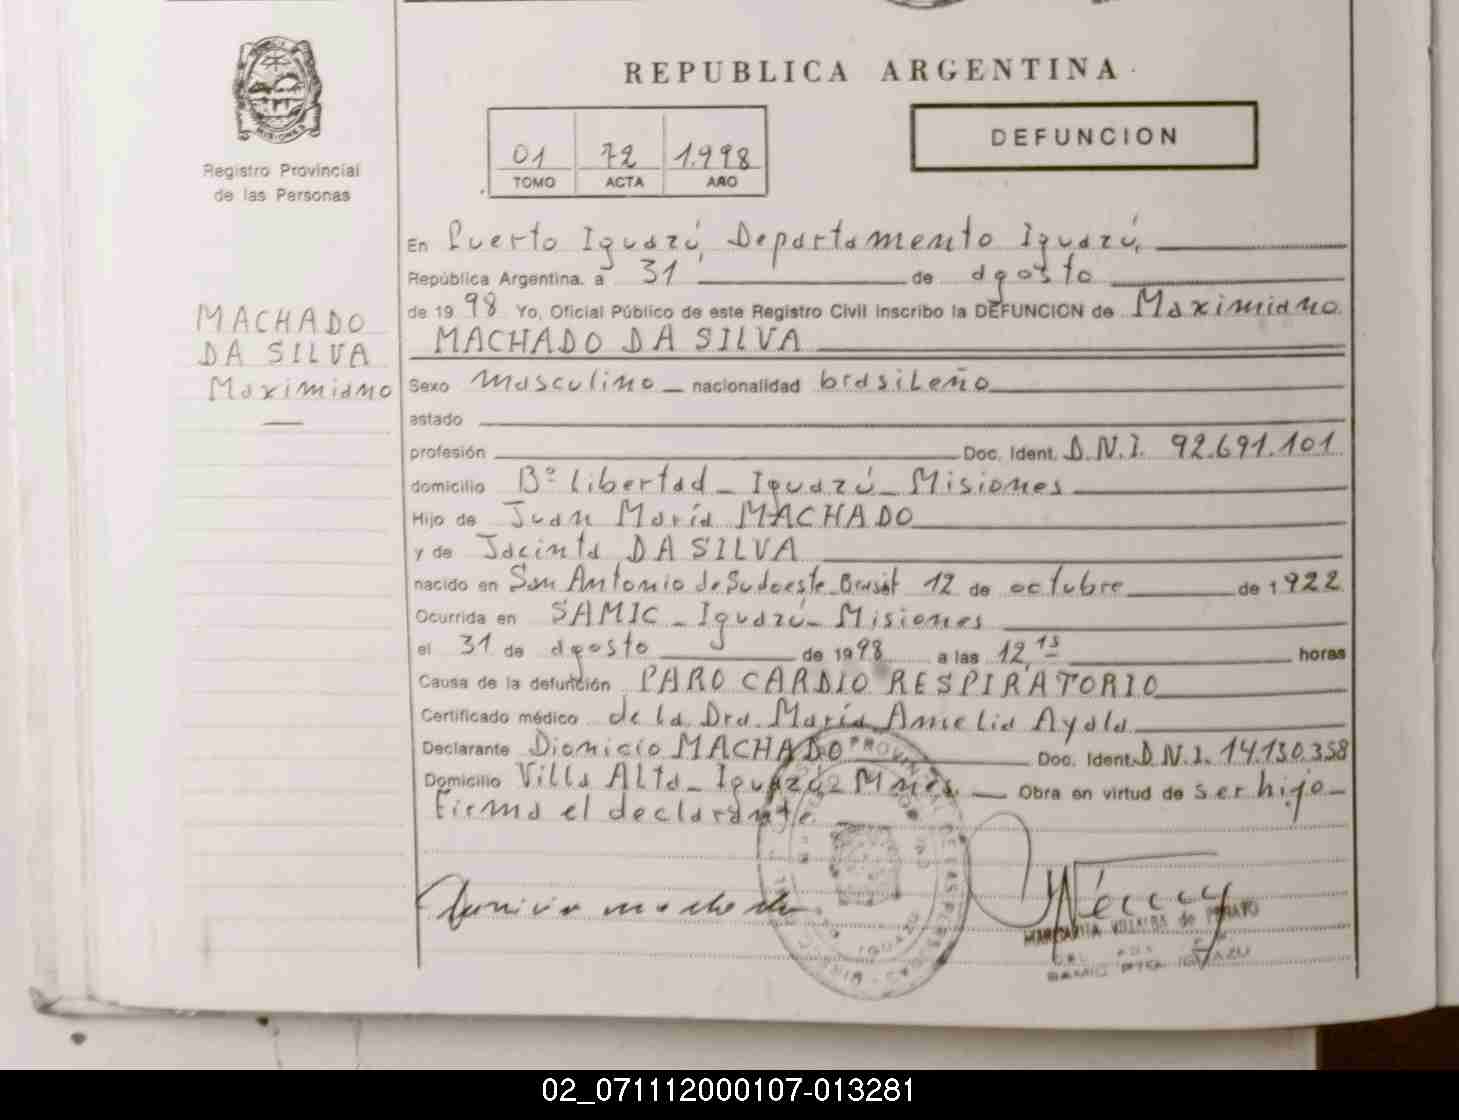 REPUBLICA ARGENTINA
MISIONES
Registro Provincial
de las Personas
DEFUNCION
01 72 1.998
TOMO ACTA AÑO
En Puerto Iguazú, Departamento Iguazú,
República Argentina. a 31 de agosto
de 1998 Yo, Oficial Público de este Registro Civil inscribo la DEFUNCION de Maximiano
MACHADO DA SILVA
MACHADO
DA SILVA
Maximiano
Sexo masculino nacionalidad brasileño
estado
profesión Doc. Ident. D.N.I. 92.691.101
domicilio Bº Libertad - Iguazú - Misiones
Hijo de Juan María MACHADO
y de Jacinta DA SILVA
nacido en San Antonio de Sudoeste - Brasil 12 de octubre de 1922
Ocurrida en SAMIC - Iguazú - Misiones
el 31 de agosto de 1998 a las 12,15 horas
Causa de la defunción PARO CARDIO RESPIRATORIO
Certificado médico de la Dra. María Amelia Ayala
Declarante Dionicio MACHADO Doc. Ident. D.N.I. 14.130.358
Domicilio Villa Alta - Iguazú - Mnes. Obra en virtud de ser hijo
Firma el declarante
MARGARITA VILLALBA de
02_071112000107-013281